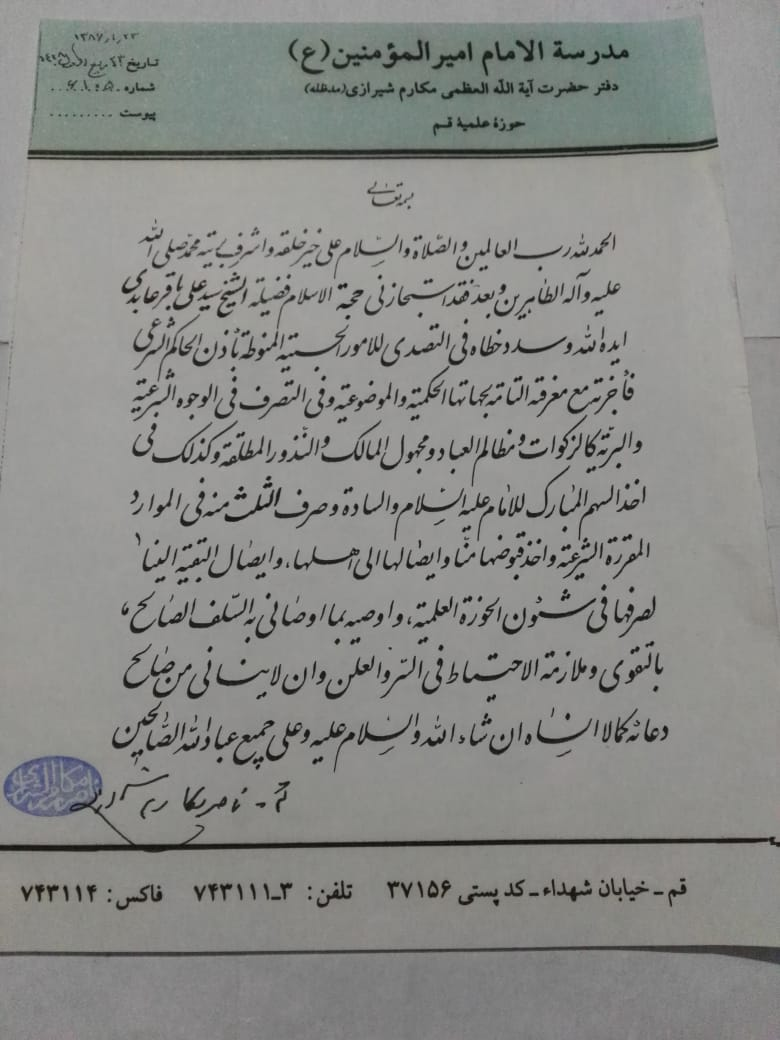 مدرسة الامام امیرالمؤمنین (ع)
دفتر حضرت آیة الله العظمی مکارم شیرازی (مدظله)
حوزهٔ علمیهٔ قم
۱۳۸۷٫۴٫۲۳
تاریخ
شماره
پیوست .........
بسمه تعالی
الحمد لله رب العالمین والصلاة والسلام علی خیر خلقه واشرف بریته محمد صلی الله
علیه وآله الطاهرین وبعد فقد استجازنی حجة الاسلام فضیلة الشیخ سید علی باقر عابدی
ایده الله وسدد خطاه فی التصدی للامور الحسبیة المنوطة بأذن الحاکم الشرعی
فأجزته مع معرفته التامة بجهاتها الحکمیة والموضوعیة وفی التصرف فی الوجوه الشرعیة
والبریة کالزکوات ومظالم العباد ومجهول المالک والنذور المطلقة وکذلک فی
اخذ السهم المبارک للامام علیه السلام والسادة وصرف الثلث منه فی الموارد
المقررة الشرعیة واخذ قبوضها منا وایصالها الی اهلها، وایصال البقیة الینا
لصرفها فی شئون الحوزة العلمیة، واوصیه بما اوصانی به السلف الصالح،
بالتقوی وملازمة الاحتیاط فی السر والعلن وان لاینسانی من صالح
دعائه کمالا انساه ان شاء الله والسلام علیه وعلی جمیع عباد الله الصالحین
قم - ناصر مکارم شیرازی
قم ـ خیابان شهداء ـ کد پستی ۳۷۱۵۶ تلفن: ۳ـ۷۴۳۱۱۱ فاکس: ۷۴۳۱۱۴